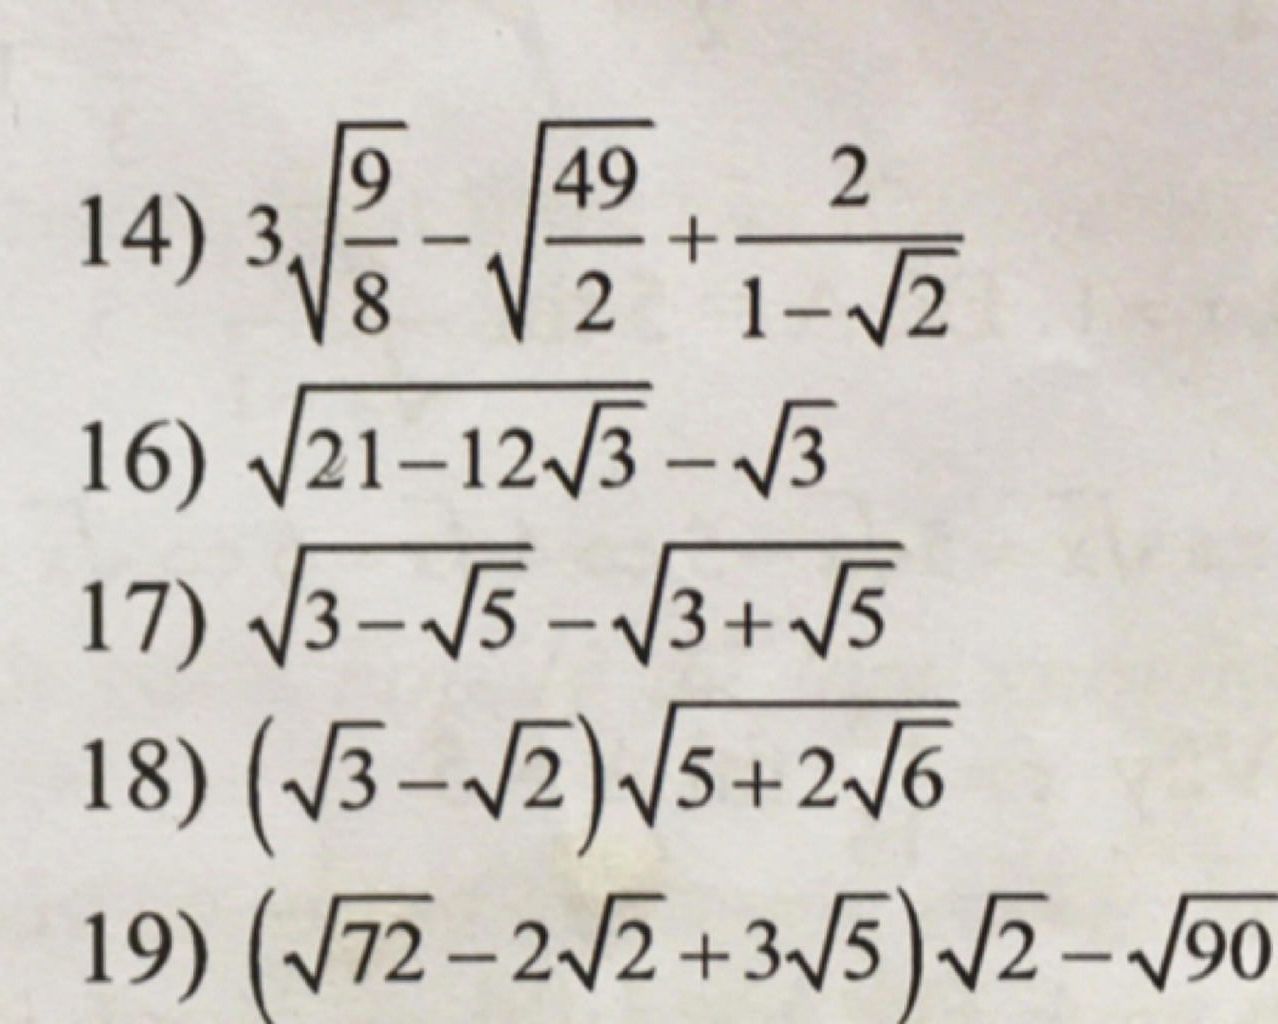 14) 3√(9/8) − √(49/2) + 2/(1−√2)
16) √(21−12√3) − √3
17) √(3−√5) − √(3+√5)
18) (√3−√2)√(5+2√6)
19) (√72−2√2+3√5)√2−√90